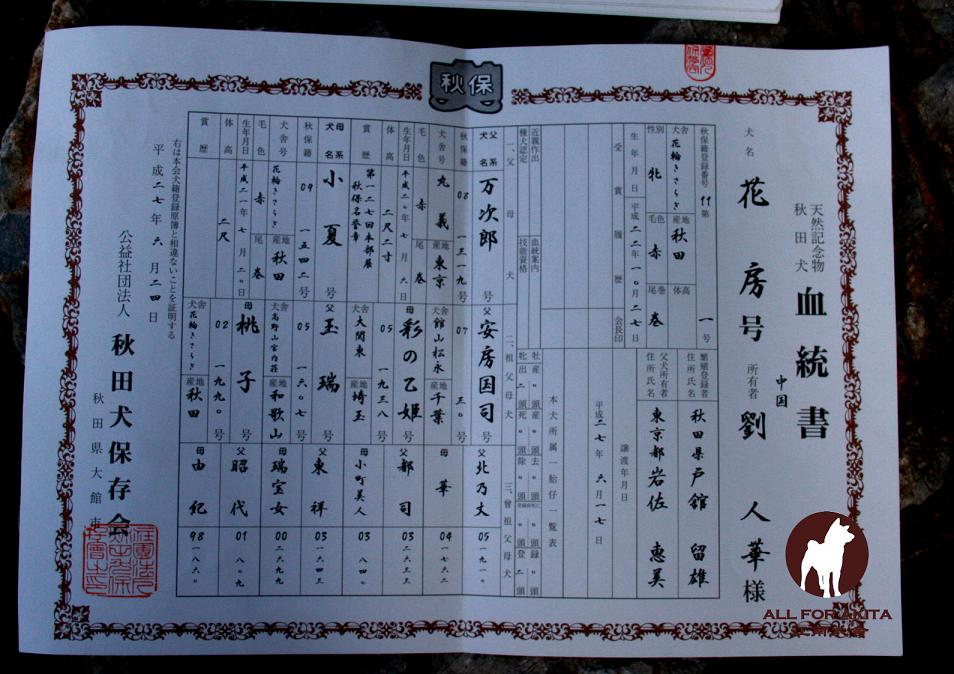 秋保
天然記念物
秋田犬
血統書
犬名 花房号
中国
所有者 劉 人華 様
秋保籍登録番号 11 第 一号
犬舎号 花輪きさらぎ 産地 秋田 体高
性別 牝 毛色 赤 尾 巻
生年月日 平成二二年一〇月二七日
受賞履歴 会長印
繁殖登録者 住所氏名 秋田県戸舘 留雄
父犬所有者 住所氏名 東京都岩佐 恵美
譲渡年月日
平成二七年六月一七日
本犬所属一胎仔一覧表
一、父母犬
二、祖父母犬
三、曾祖父母犬
父系 犬名 万次郎 号
秋保籍 08 一三一九号
犬舎号 丸義 産地 東京
毛色 赤 尾 巻
生年月日 平成二〇年七月六日
体高 二尺二寸
賞歴 第一二七回本部展
秋保名誉章
母系 犬名 小夏 号
秋保籍 09 一五四二号
犬舎号 花輪きさらぎ 産地 秋田
毛色 赤 尾 巻
生年月日 平成二一年七月二〇日
体高 二尺
賞歴
父 安房国司 号
07 三〇号
犬舎 館山松永 産地 千葉
母 彩の乙姫 号
05 一九三八号
犬舎 大関東 産地 埼玉
父 玉瑞 号
05 一六〇七号
犬舎 高野山宮内荘 産地 和歌山
母 桃子 号
02 一一九〇号
犬舎 花輪きさらぎ 産地 秋田
父 北乃丈 05 一九一〇
母 華 04 一七六二
父 都司 03 二六三三
母 小町美人 03 八四〇
父 東祥 03 一六四三
母 瑞宝女 00 二六九九
父 昭代 01 八〇九
母 由紀 98 一八六〇
右は本会犬籍登録原簿と相違ないことを証明する
平成二七年六月二四日
公益社団法人 秋田犬保存会
秋田県大館市
ALL FOR AKITA